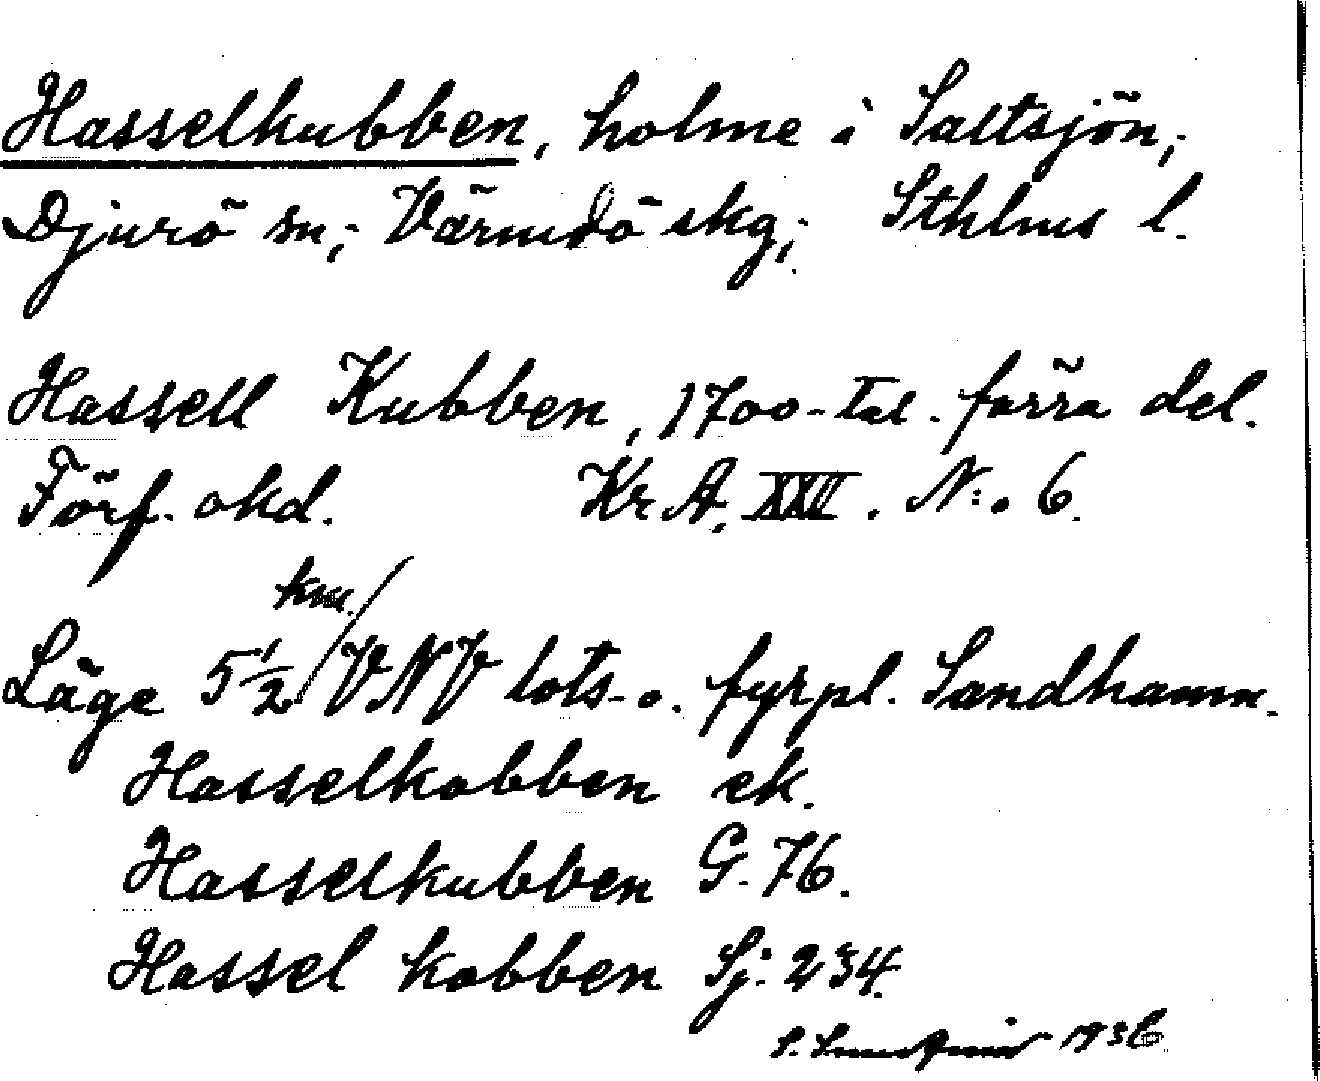 Hasselkubben, holme i Saltsjön,
Djurö sn, Värmdö skg, Sthlms l.
Hassell Kubben, 1700-tal. förra del.
Förf. okd. Kr A. XXII. N:o 6.
Läge 5½ km. VNV lots- o. fyrpl. Sandhamn.
Hasselkobben ek.
Hasselkubben G. 76.
Hassel kobben Sj. 234.
S. 1936